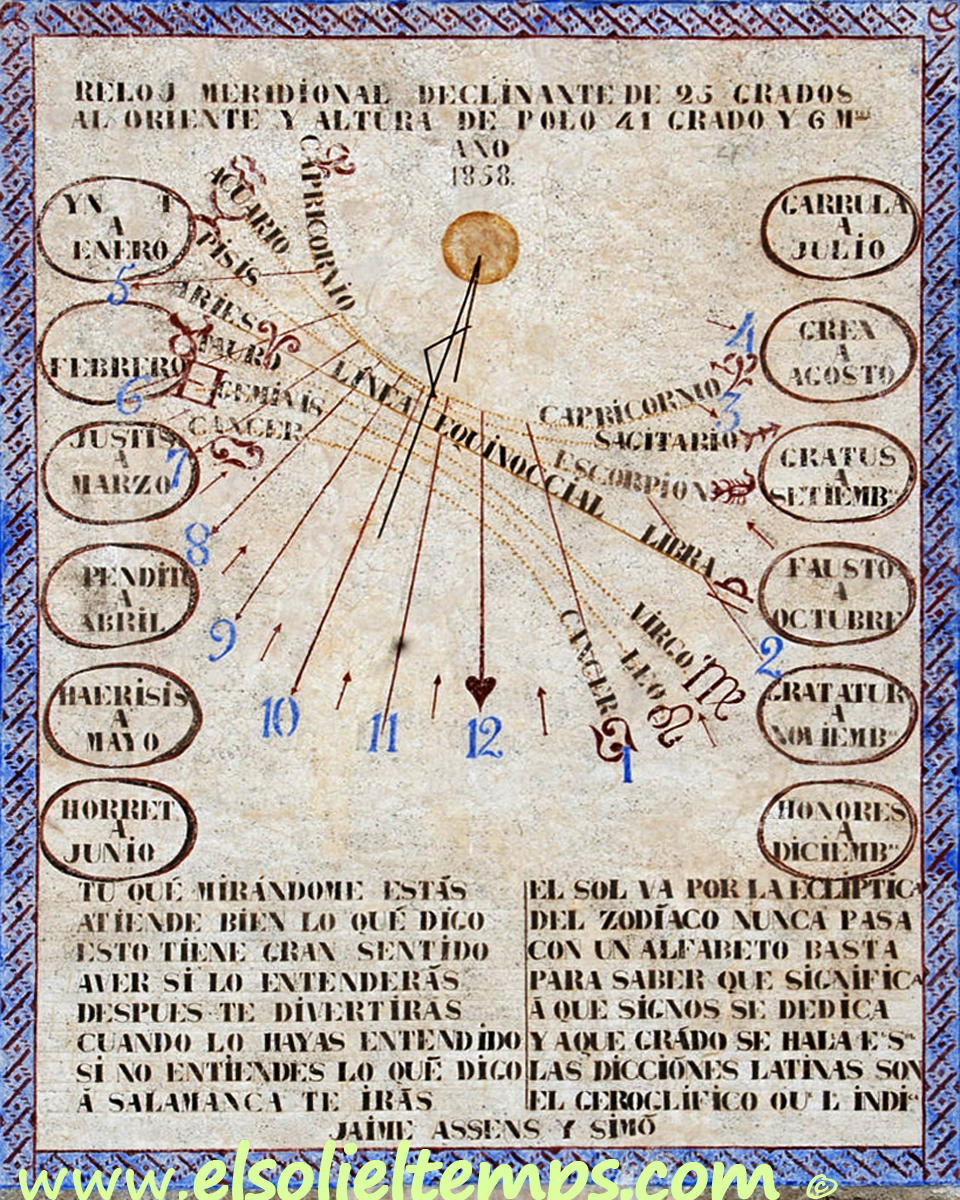 RELOJ MERIDIONAL DECLINANTE DE 25 GRADOS
AL ORIENTE Y ALTURA DE POLO 41 GRADO Y 6 M
AÑO
1858.
YN T
A
ENERO
FEBRERO
JUSTIS
A
MARZO
PENDIT
A
ABRIL
HAERISIS
A
MAYO
HORRET
A
JUNIO
GARRULA
A
JULIO
GREX
A
AGOSTO
GRATUS
A
SETIEMB
FAUSTO
A
OCTUBRE
GRATATUR
A
NOVIEMB
HONORES
A
DICIEMB
CAPRICORNIO
ACUARIO
PISIS
ARIES
TAURO
GEMINIS
CANCER
LÍNEA EQUINOCCIAL
CAPRICORNIO
SAGITARIO
ESCORPION
LIBRA
VIRGO
LEO
CANCER
5
6
7
8
9
10
11
12
1
2
3
4
TU QUÉ MIRÁNDOME ESTÁS
ATIENDE BIEN LO QUÉ DIGO
ESTO TIENE GRAN SENTIDO
AVER SI LO ENTENDERÁS
DESPUES TE DIVERTIRÁS
CUANDO LO HAYAS ENTENDIDO
SI NO ENTIENDES LO QUÉ DIGO
Á SALAMANCA TE IRÁS
EL SOL VA POR LA ECLÍPTICA
DEL ZODÍACO NUNCA PASA
CON UN ALFABETO BASTA
PARA SABER QUE SIGNIFICA
Á QUE SIGNOS SE DEDICA
Y AQUE GRÁDO SE HALA
LAS DICCIÓNES LATINAS SON
EL GEROGLÍFICO
JAIME ASSENS Y SIMÓ
www.elsolieltemps.com ©